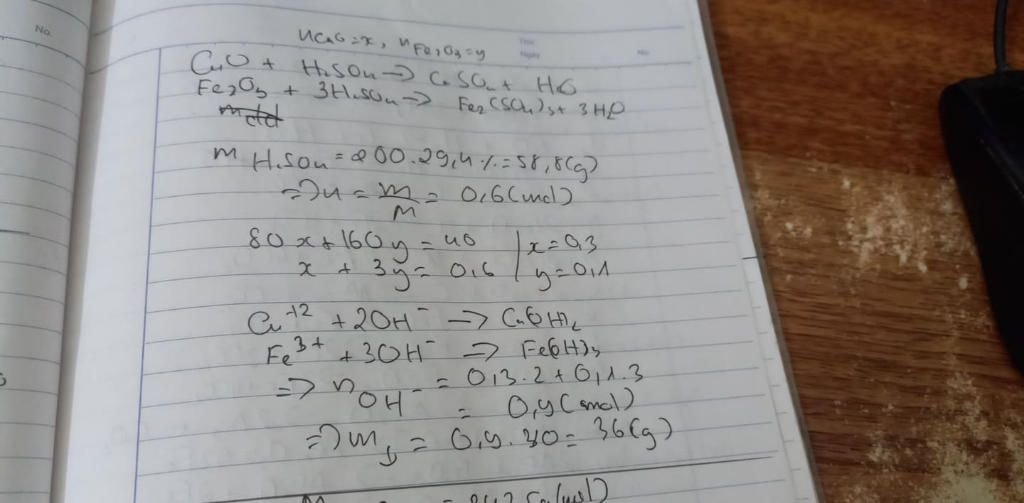 No.
nCuO = x, nFe2O3 = y
CuO + H2SO4 => CuSO4 + H2O
Fe2O3 + 3H2SO4 => Fe2(SO4)3 + 3H2O
mctd
m H2SO4 = 200.29,4% = 58,8(g)
=> n = m/M = 0,6(mol)
80x + 160y = 40 | x = 0,3
x + 3y = 0,6 | y = 0,1
Cu+2 + 2OH- -> Cu(OH)2
Fe3+ + 3OH- -> Fe(OH)3
=> nOH- = 0,3.2 + 0,1.3
= 0,9(mol)
=> m = 0,9.40 = 36(g)